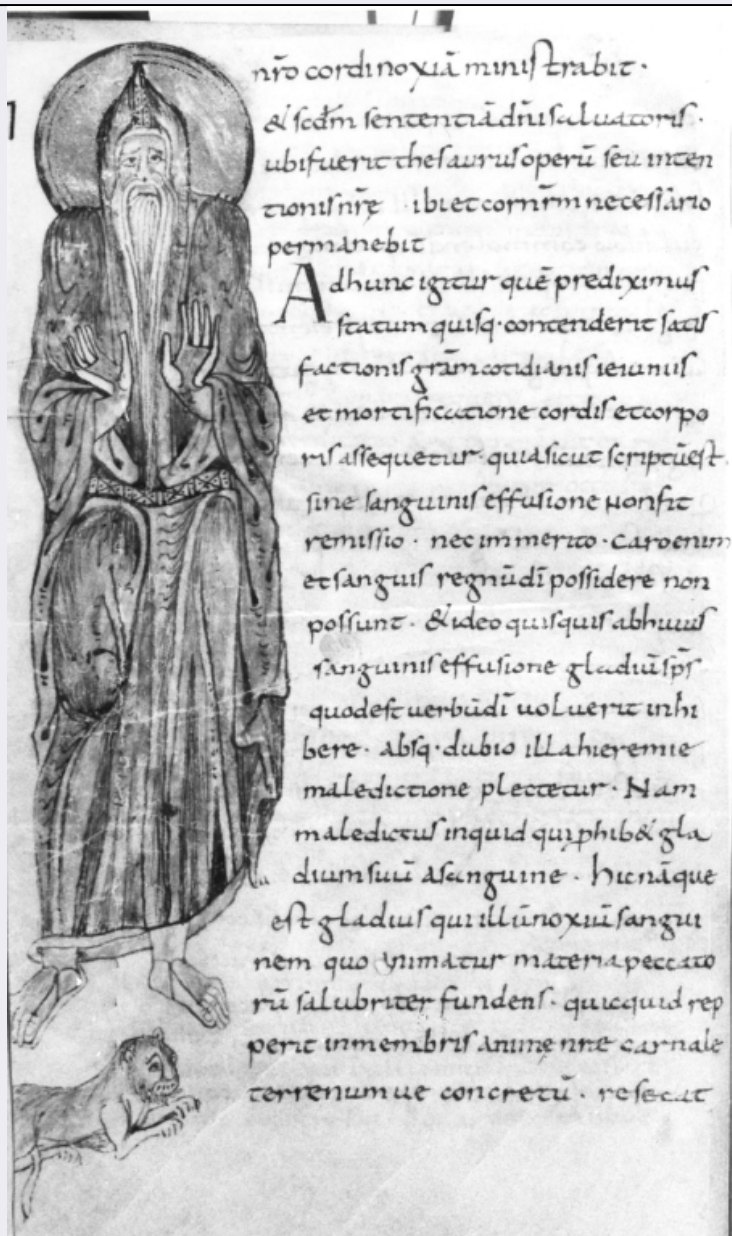 nr̄o cordi noxiā ministrabit ·
& scdm̄ sententiā dn̄i saluatoris ·
ubi fuerit thesaurus operū seu inten
tionis nr̄ę · ibi et cor nr̄m necessario
permanebit
Ad hunc igitur quē prediximus
statum quisq· contenderit satis
factionis gr̄am cotidianis ieiuniis
et mortificatione cordis et corpo
ris assequetur · quia sicut scriptū est ·
sine sanguinis effusione non fit
remissio · nec immerito · Caro enim
et sanguis regnū dī possidere non
possunt · & ideo quisquis ab huius
sanguinis effusione gladiū sp̄s
quod est uerbū dī uoluerit inhi
bere · absq· dubio illa hieremie
maledictione plectetur · Nam
maledictus inquid qui phib& gla
dium suū a sanguine · hic nāque
est gladius qui illū noxiū sangui
nem quo animatur materia peccato
rū salubriter fundens · quicquid rep
perit in membris animę nr̄e carnale
terrenumue concretū · resecat